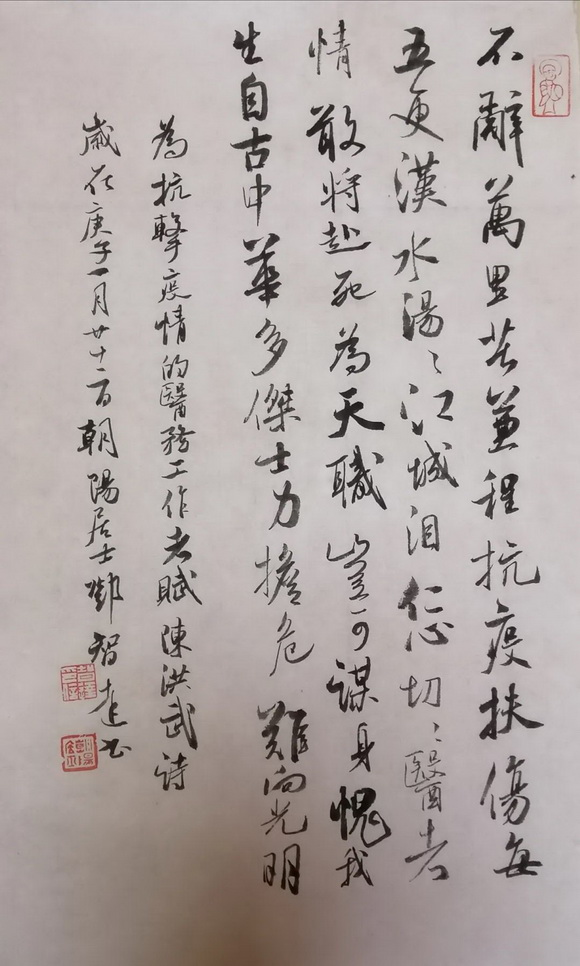 不辭萬里苦兼程抗疫扶傷每
五更漢水湯〻江城泪仁心切〻醫者
情敢將赴死為天職豈可謀身愧我
生自古中華多傑士力擔危難向光明
為抗擊疫情的醫務工作者賦陳洪武詩
歲在庚子一月廿十二日朝陽居士鄧智達書